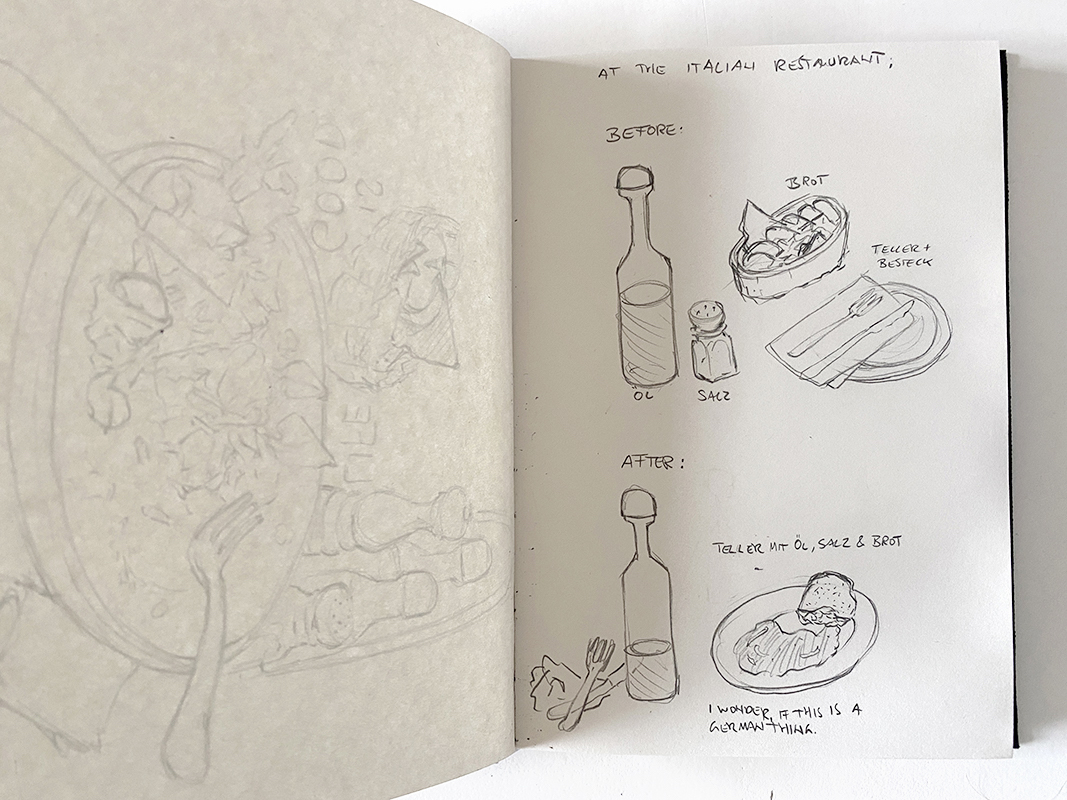 AT THE ITALIAN RESTAURANT:
BEFORE:
BROT
TELLER +
BESTECK
ÖL
SALZ
AFTER:
TELLER MIT ÖL, SALZ & BROT
I WONDER, IF THIS IS A
GERMAN THING.